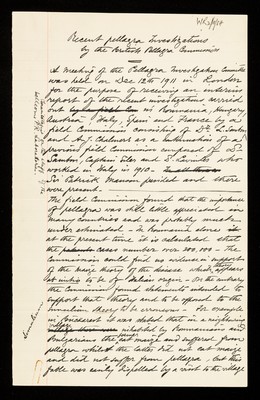 Recent pellagra Investigations
by the British Pellagra Commission
A meeting of the Pellagra Investigation Committee
was held on Dec 12th 1911 in London
for the purpose of receiving an interim
report of the recent investigations carried
out in Roumania, Hungary,
Austria, Italy, Spain and France by a
field Commission consisting of Dr L. Sambon
and A. J. Chalmers as a continuation of a
previous field Commission composed of Dr
Sambon, Captain Siler and who
worked in Italy in 1910.
Sir Patrick Manson presided and there
were present.
The field Commission found that the importance
of pellagra was still little appreciated in
many countries and was probably much
under estimated. In Roumania alone
at the present time it is calculated that
the cases number over
Commission could find no evidence in support
of the maize theory of the disease which appears
to be of Italian origin. On the contrary
the Commission found statements intended to
support that theory and to be opposed to the
theory to be erroneous. For example
in Bucharest it was stated that in a neighbouring
village inhabited by Roumanians and
Bulgarians the eat maize and suffered from
pellagra whilst the latter did not eat maize
and did not suffer from pellagra, but this
fable was easily dispelled by a visit to the village